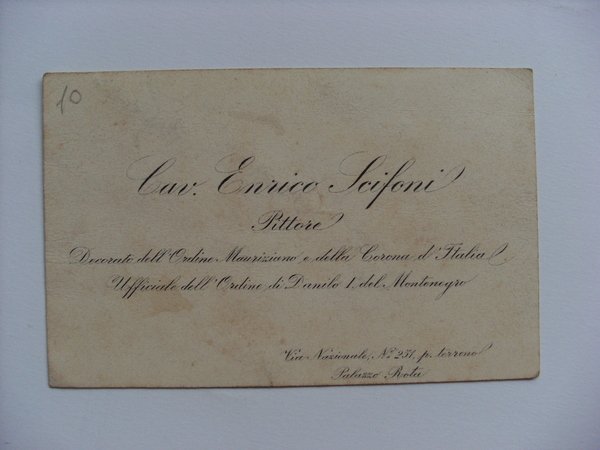 10
Cav. Enrico Scifoni
Pittore
Decorato dell'Ordine Mauriziano e della Corona d'Italia
Ufficiale dell'Ordine di Danilo 1, del Montenegro
Via Nazionale, No 251, p. terreno
Palazzo Rota